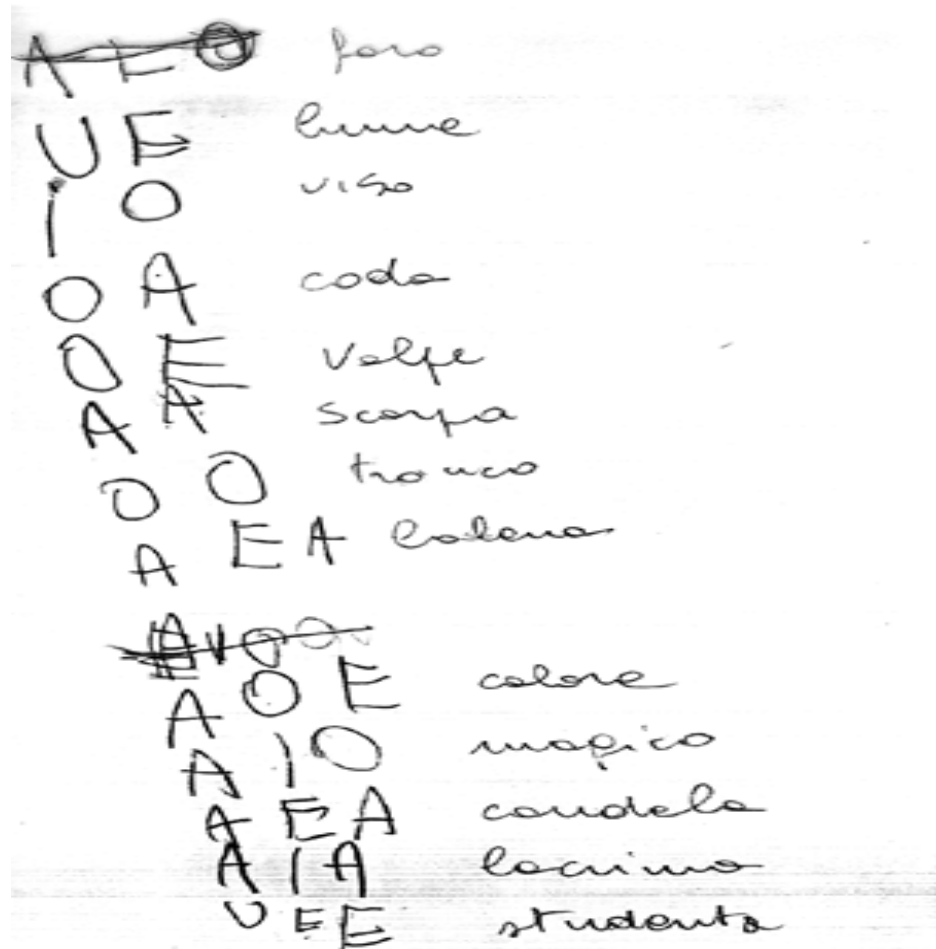 A E O faro
U E lume
i O viso
O A coda
O E Volpe
A A scarpa
O O tronco
A E A balena
A O E calore
A I O magico
A E A candela
A I A lacrima
U E E studente